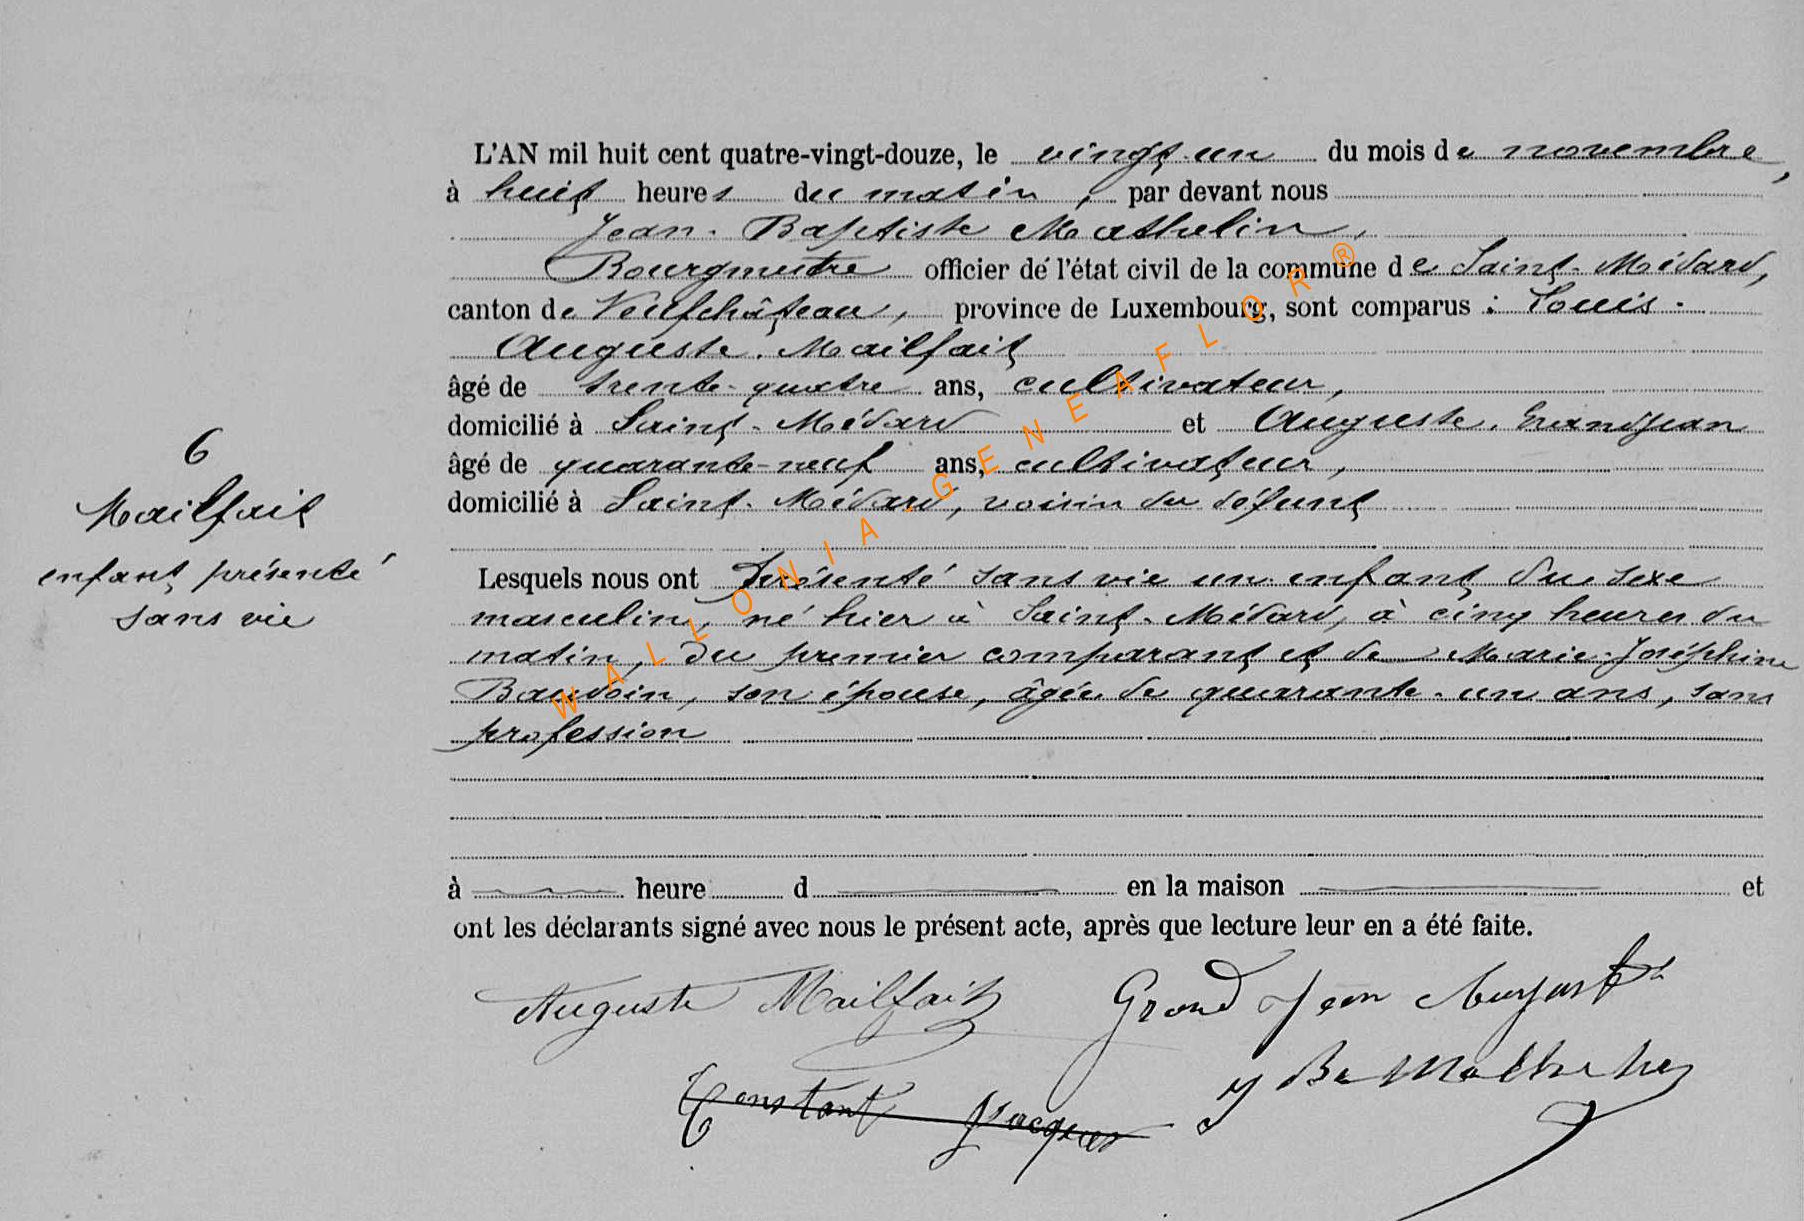 L'AN mil huit cent quatre-vingt-douze, le vingt-un du mois de novembre,
à huit heures du matin, par devant nous
Jean-Baptiste Mathelin,
Bourgmestre officier de l'état civil de la commune de Saint-Médard,
canton de Neufchâteau, province de Luxembourg, sont comparus : Louis-
Auguste Mailfait
âgé de trente-quatre ans, cultivateur,
domicilié à Saint-Médard et Auguste Grandjean
âgé de quarante-neuf ans, cultivateur,
domicilié à Saint-Médard, voisin du défunt
6
Mailfait
enfant présenté
sans vie
Lesquels nous ont présenté sans vie un enfant du sexe
masculin, né hier à Saint-Médard, à cinq heures du
matin, du premier comparant et de Marie-Joséphine
Baudoin, son épouse, âgée de quarante-un ans, sans
profession
à heure d en la maison et
ont les déclarants signé avec nous le présent acte, après que lecture leur en a été faite.
Auguste Mailfait Grand Jean August
Constant Jacques J Bte Mathelin
WALLONIA-GENEAFLOR®